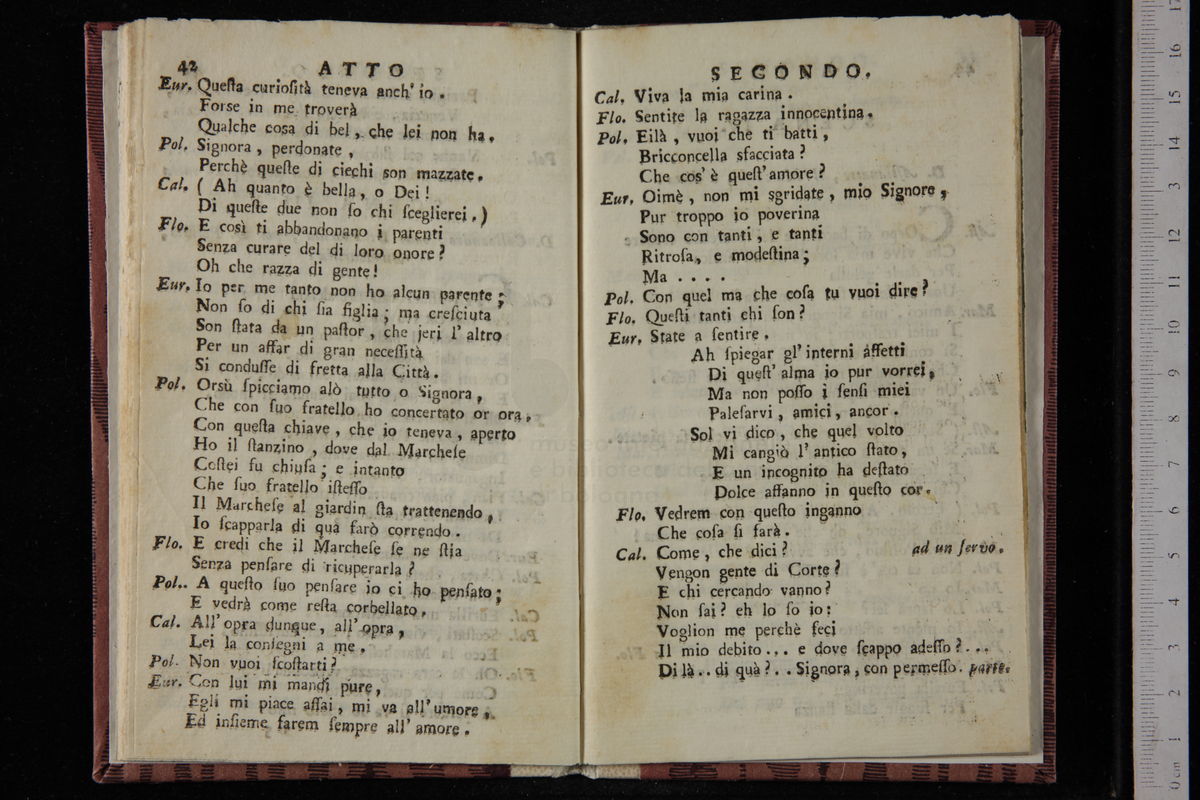 42 ATTO
Eur. Queſta curioſità teneva anch' io .
Forse in me troverà
Qualche cosa di bel, che lei non ha.
Pol. Signora , perdonate ,
Perchè queſte di ciechi son mazzate.
Cal. ( Ah quanto è bella, o Dei !
Di queſte due non ſo chi ſceglierei. )
Flo. E così ti abbandonano i parenti
Senza curare del di loro onore ?
Oh che razza di gente!
Eur. Io per me tanto non ho alcun parente ;
Non ſo di chi ſia figlia ; ma creſciuta
Son ſtata da un paſtor , che jeri l' altro
Per un affar di gran neceſſità
Si conduſſe di fretta alla Città .
Pol. Orsù ſpicciamo alò tutto o Signora ,
Che con ſuo fratello ho concertato or ora.
Con queſta chiave , che io teneva , aperto
Ho il ſtanzino , dove dal Marcheſe
Coſtei fu chiuſa ; e intanto
Che ſuo fratello iſteſſo
Il Marcheſe al giardin ſta trattenendo ,
Io ſcapparla di quà farò correndo .
Flo. E credi che il Marcheſe ſe ne ſtia
Senza penſare di ricuperarla ?
Pol.. A queſto ſuo penſare io ci ho penſato ;
E vedrà come reſta corbellato .
Cal. All' opra dunque, all' opra ,
Lei la conſegni a me .
Pol. Non vuoi ſcoſtarti ?
Eur. Con lui mi mandi pure,
Egli mi piace aſſai , mi va all' umore ,
Ed inſieme farem ſempre all' amore .
SECONDO.
Cal. Viva la mia carina .
Flo. Sentite la ragazza innocentina.
Pol. Eilà , vuoi che ti batti ,
Bricconcella sfacciata ?
Che cos' è queſt' amore ?
Eur. Oimè , non mi sgridate , mio Signore ,
Pur troppo io poverina
Sono con tanti , e tanti
Ritroſa, e modeſtina ;
Ma . . . .
Pol. Con quel ma che coſa tu vuoi dire ?
Flo. Queſti tanti chi ſon ?
Eur. State a ſentire .
Ah ſpiegar gl' interni affetti
Di queſt' alma io pur vorrei,
Ma non poſſo i ſenſi miei
Paleſarvi , amici , ancor .
Sol vi dico , che quel volto
Mi cangiò l' antico ſtato ,
E un incognito ha deſtato
Dolce affanno in queſto cor.
Flo. Vedrem con queſto inganno
Che coſa ſi farà .
Cal. Come , che dici ? ad un ſervo.
Vengon gente di Corte ?
E chi cercando vanno ?
Non ſai ? eh lo ſo io :
Voglion me perchè feci
Il mio debito ... e dove ſcappo adeſſo ? ...
Di là .. di quà ? . . Signora , con permeſſo . parte.
0 cm 1 2 3 4 5 6 7 8 9 10 11 12 13 14 15 16 17